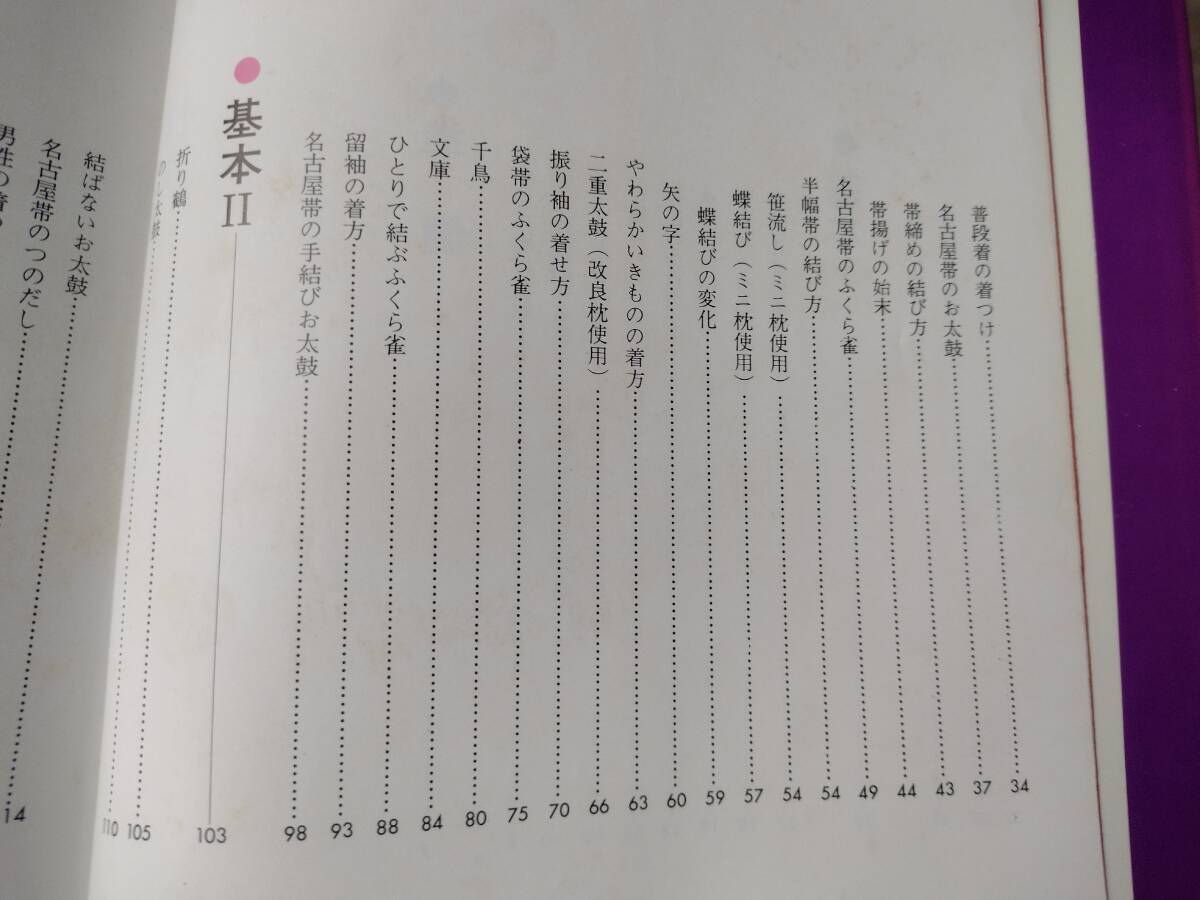 普段着の着つけ 34
名古屋帯のお太鼓 37
帯締めの結び方 43
帯揚げの始末 44
名古屋帯のふくら雀 49
半幅帯の結び方 54
笹流し（ミニ枕使用） 54
蝶結び（ミニ枕使用） 57
蝶結びの変化 59
矢の字 60
やわらかいきものの着方 63
二重太鼓（改良枕使用） 66
振り袖の着せ方 70
袋帯のふくら雀 75
千鳥 80
文庫 84
ひとりで結ぶふくら雀 88
留袖の着方 93
名古屋帯の手結びお太鼓 98
● 基本II 103
折り鶴 105
のし太鼓 110
結ばないお太鼓
名古屋帯のつのだし
男性の